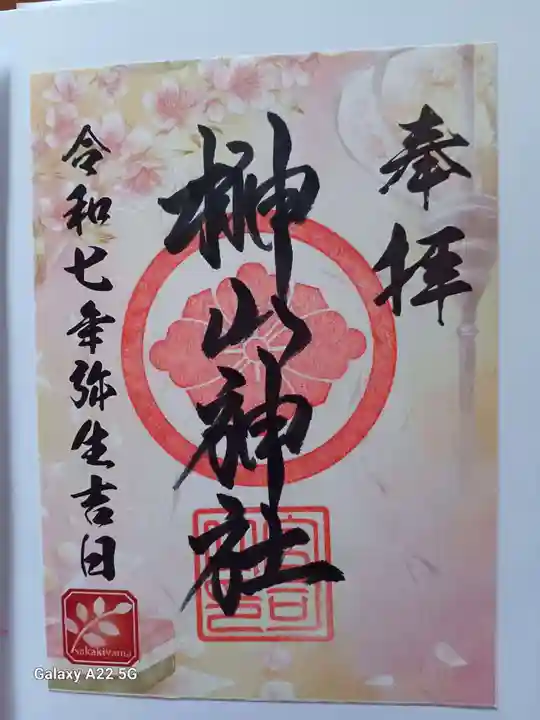 奉拝
榊山神社
令和七年弥生吉日
sakakiyama
Galaxy A22 5G